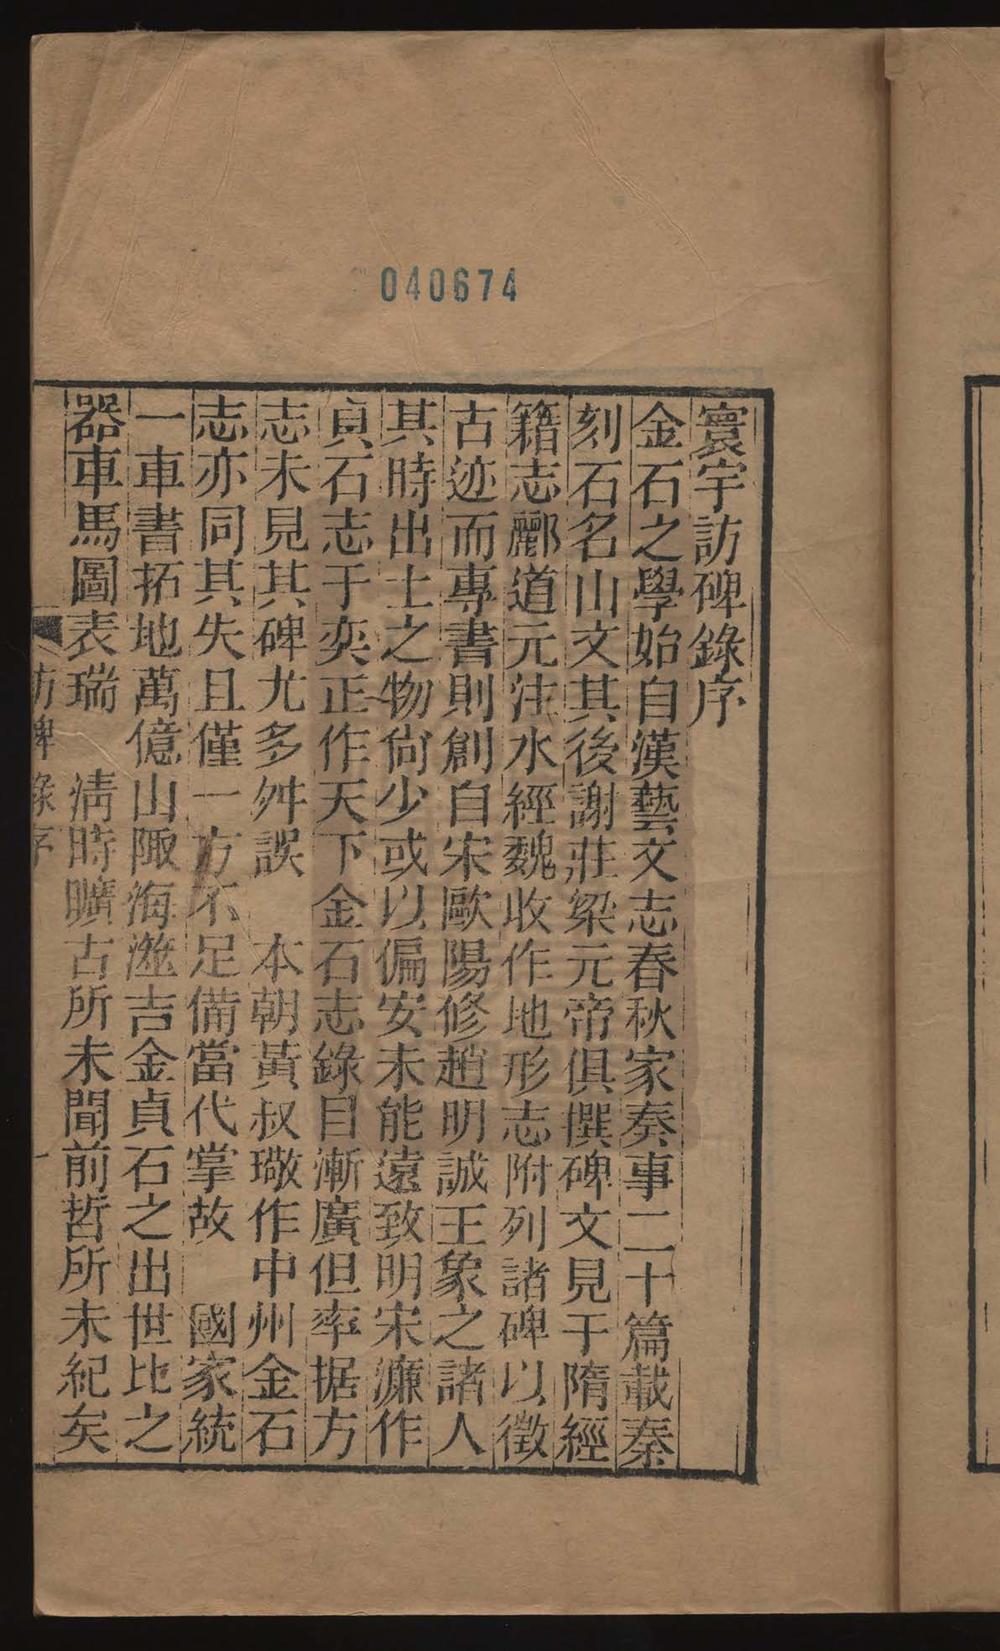 040674
寰宇訪碑錄序
金石之學始自漢藝文志春秋家奏事二十篇載秦
刻石名山文其後謝莊梁元帝俱撰碑文見于隋經
籍志酈道元注水經魏收作地形志附列諸碑以徵
古迹而專書則創自宋歐陽修趙明誠王象之諸人
其時出土之物尙少或以偏安未能遠致明宋濂作
貞石志于奕正作天下金石志錄目漸廣但率据方
志未見其碑尤多舛誤　本朝黃叔璥作中州金石
志亦同其失且僅一方不足備當代掌故　國家統
一車書拓地萬億山陬海澨吉金貞石之出世比之
器車馬圖表瑞　淸時曠古所未聞前哲所未紀矣
訪碑錄序
一